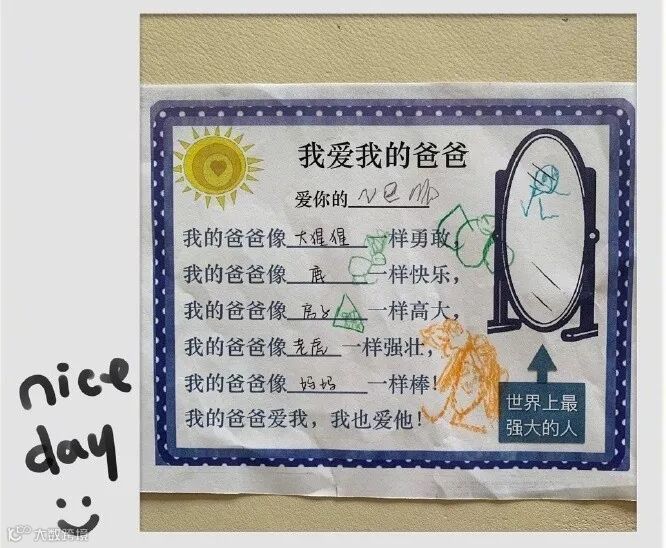 我爱我的爸爸
爱你的
我的爸爸像大猩猩一样勇敢,
我的爸爸像鹿一样快乐,
我的爸爸像房子一样高大,
我的爸爸像老虎一样强壮,
我的爸爸像妈妈一样棒!
我的爸爸爱我,我也爱他!
世界上最
强大的人
nice
day
大数跨境